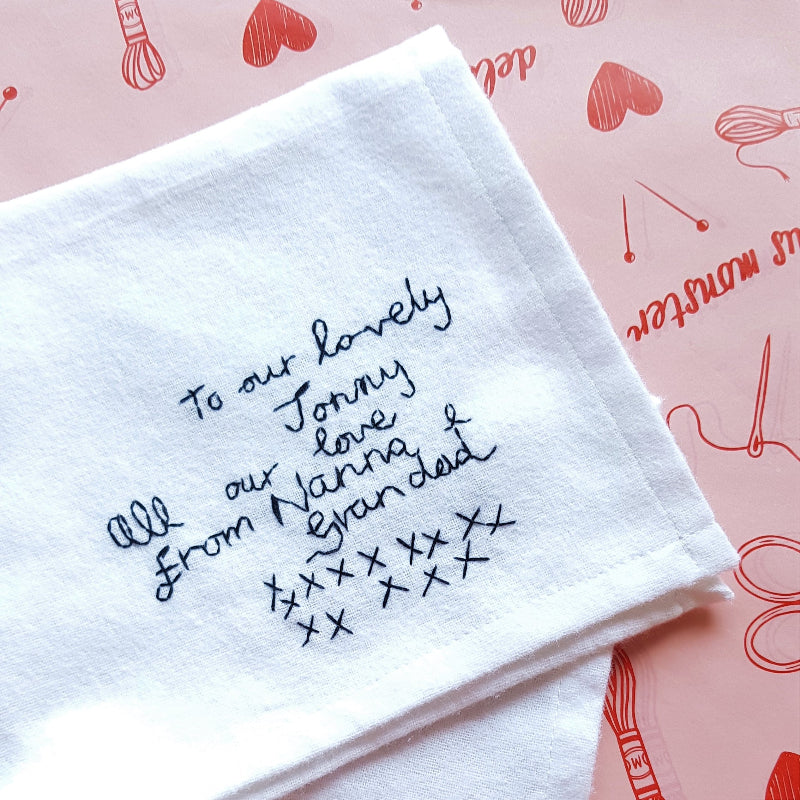 To our lovely
Jonny
All our love
from Nanna &
grandad
x x x x x x x x x
x x x x x
deli
us monster